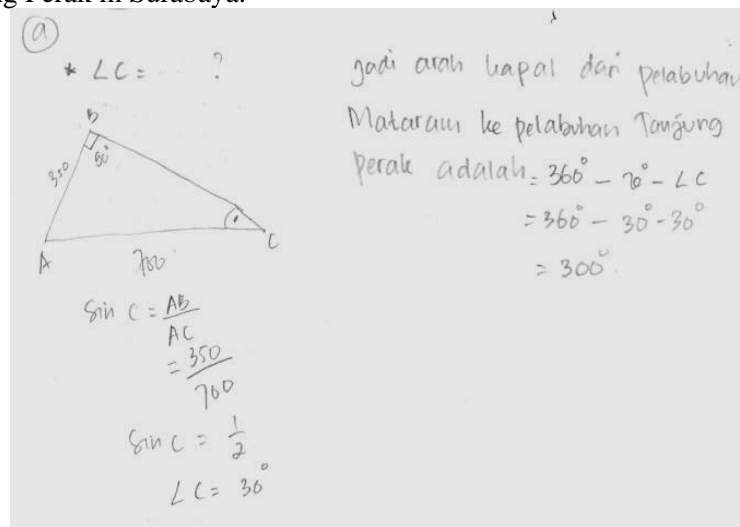 ng Perak in Surabaya.
(a)
* ∠C = ?
B
350
90°
A
700
C
Sin C = AB
AC
= 350
700
Sin C = 1
2
∠C = 30°
Jadi arah kapal dari pelabuhan
Mataram ke pelabuhan Tanjung
Perak adalah = 360° - - ∠C
= 360° - 30° - 30°
= 300°.